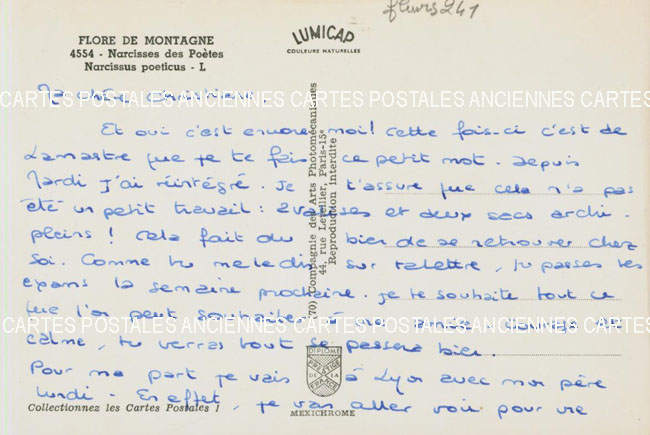 fleurs 241
FLORE DE MONTAGNE
4554 - Narcisses des Poètes
Narcissus poeticus - L
LUMICAP
COULEURS NATURELLES
Ma chère Christiane,
CARTES POSTALES ANCIENNES CARTES POSTALES ANCIENNES CARTES POSTALES
Et oui c'est encore moi! Cette fois-ci c'est de
Lamastre que je te fais ce petit mot. Depuis
Mardi j'ai réintégré. Je t'assure que cela n'a pas
été un petit travail: 2 valises et deux sacs archi-
pleins! Cela fait du bien de se retrouver chez
soi. Comme tu me le dis sur ta lettre, tu passes tes
exams la semaine prochaine. Je te souhaite tout ce
que l'on peut souhaiter à
CARTES POSTALES ANCIENNES CARTES POSTALES ANCIENNES CARTES POSTALES
calme, tu verras tout se passera bien.
Pour ma part je vais à Lyon avec mon père
lundi - En effet, je vais aller voir pour une
(70) Compagnie des Arts Photomécaniques
44, rue Letellier, Paris-15e
Reproduction Interdite
DIPLOME
PRESTIGE
DE LA
FRANCE
Collectionnez les Cartes Postales !
MEXICHROME